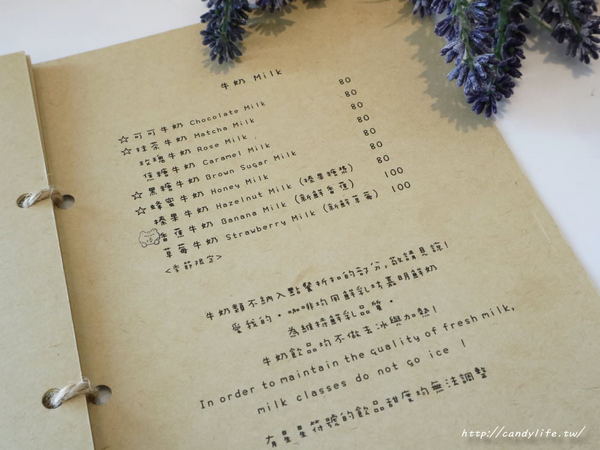 牛奶 Milk
☆可可牛奶 Chocolate Milk 80
☆抹茶牛奶 Matcha Milk 80
玫瑰牛奶 Rose Milk 80
焦糖牛奶 Caramel Milk 80
☆黑糖牛奶 Brown Sugar Milk 80
☆蜂蜜牛奶 Honey Milk 80
榛果牛奶 Hazelnut Milk (榛果糖漿) 80
香蕉牛奶 Banana Milk (新鮮香蕉) 100
草莓牛奶 Strawberry Milk (新鮮草莓) 100
<季節限定>
牛奶類不納入點餐折扣的部分,敬請見諒!
愛我的。咖啡均用鮮乳坊嘉明鮮奶
為維持鮮乳品質。
牛奶飲品均不做去冰與加熱!
In order to maintain the quality of fresh milk,
milk classes do not go ice !
有星星符號的飲品甜度均無法調整
http://candylife.tw/